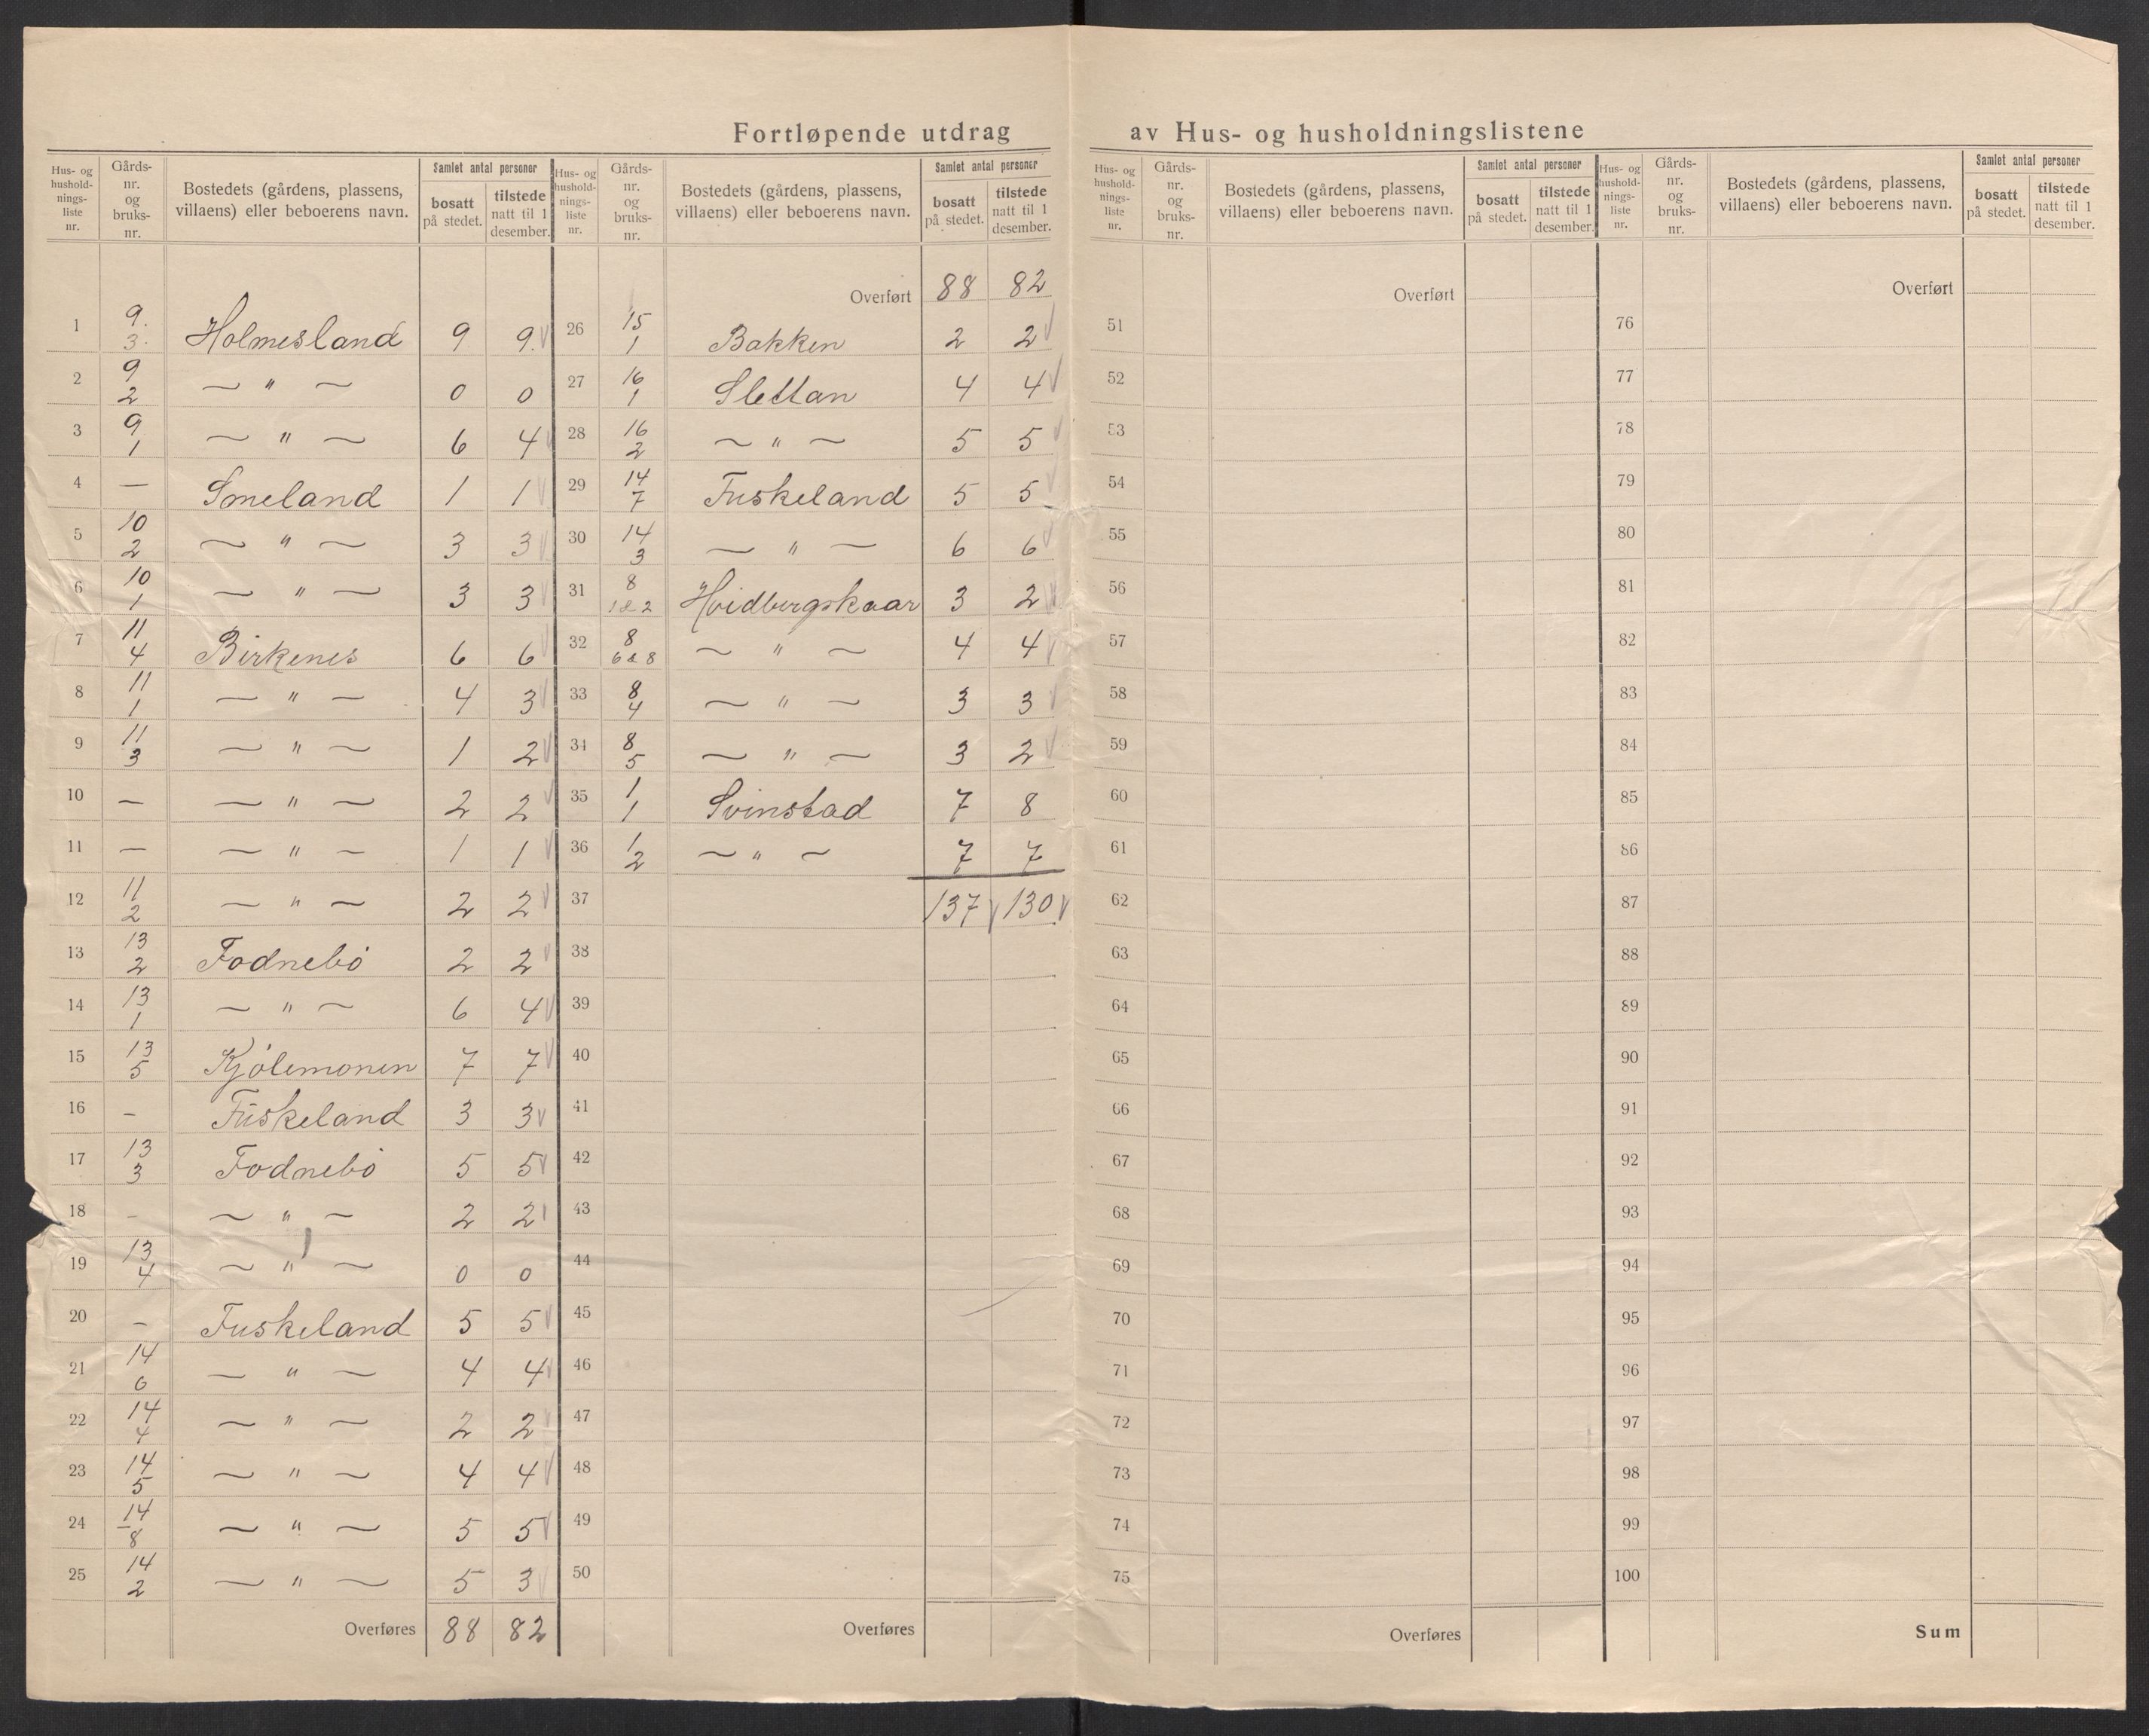 Fortløpende utdrag av Hus- og husholdningslistene
Hus- og hushold-nings-liste nr. | Gårds-nr. og bruks-nr. | Bostedets (gårdens, plassens, villaens) eller beboerens navn. | Samlet antal personer | bosatt på stedet. | tilstede natt til 1 desember.
Hus- og hushold-nings-liste nr. | Gårds-nr. og bruks-nr. | Bostedets (gårdens, plassens, villaens) eller beboerens navn. | Samlet antal personer | bosatt på stedet. | tilstede natt til 1 desember.
Hus- og hushold-nings-liste nr. | Gårds-nr. og bruks-nr. | Bostedets (gårdens, plassens, villaens) eller beboerens navn. | Samlet antal personer | bosatt på stedet. | tilstede natt til 1 desember.
Hus- og hushold-nings-liste nr. | Gårds-nr. og bruks-nr. | Bostedets (gårdens, plassens, villaens) eller beboerens navn. | Samlet antal personer | bosatt på stedet. | tilstede natt til 1 desember.
1 9. 3. Holmesland 9 9.
2 9 2 — " — 0 0
3 9 1 — " — 6 4
4 — Smeland 1 1
5 10 2 — " — 3 3
6 10 1 — " — 3 3
7 11 4 Birkenes 6 6
8 11 1 — " — 4 3
9 11 3 — " — 1 2
10 — — " — 2 2
11 — — " — 1 1
12 11 2 — " — 2 2
13 13 2 Fodnebö 2 2
14 13 1 — " — 6 4
15 13 5 Kjölemonen 7 7
16 – Fuskeland 3 3
17 13 3 Fodnebö 5 5
18 – — " — 2 2
19 13 4 — " — 0 0
20 – Fuskeland 5 5
21 14 6 — " — 4 4
22 14 4 — " — 2 2
23 14 5 — " — 4 4
24 14 8 — " — 5 5
25 14 2 — " — 5 3
Overføres 88 82
Overført 88 82
26 15 1 Bakken 2 2
27 16 1 Slettan 4 4
28 16 2 — " — 5 5
29 14 7 Fuskeland 5 5
30 14 3 — " — 6 6
31 8 1&2 Hvidbergskaar 3 2
32 8 6&8 — " — 4 4
33 8 4 — " — 3 3
34 8 5 — " — 3 2
35 1 1 Svinstad 7 8
36 1 2 — " — 7 7
37 137 130
38
39
40
41
42
43
44
45
46
47
48
49
50
Overføres
Overført
51
52
53
54
55
56
57
58
59
60
61
62
63
64
65
66
67
68
69
70
71
72
73
74
75
Overføres
Overført
76
77
78
79
80
81
82
83
84
85
86
87
88
89
90
91
92
93
94
95
96
97
98
99
100
Sum